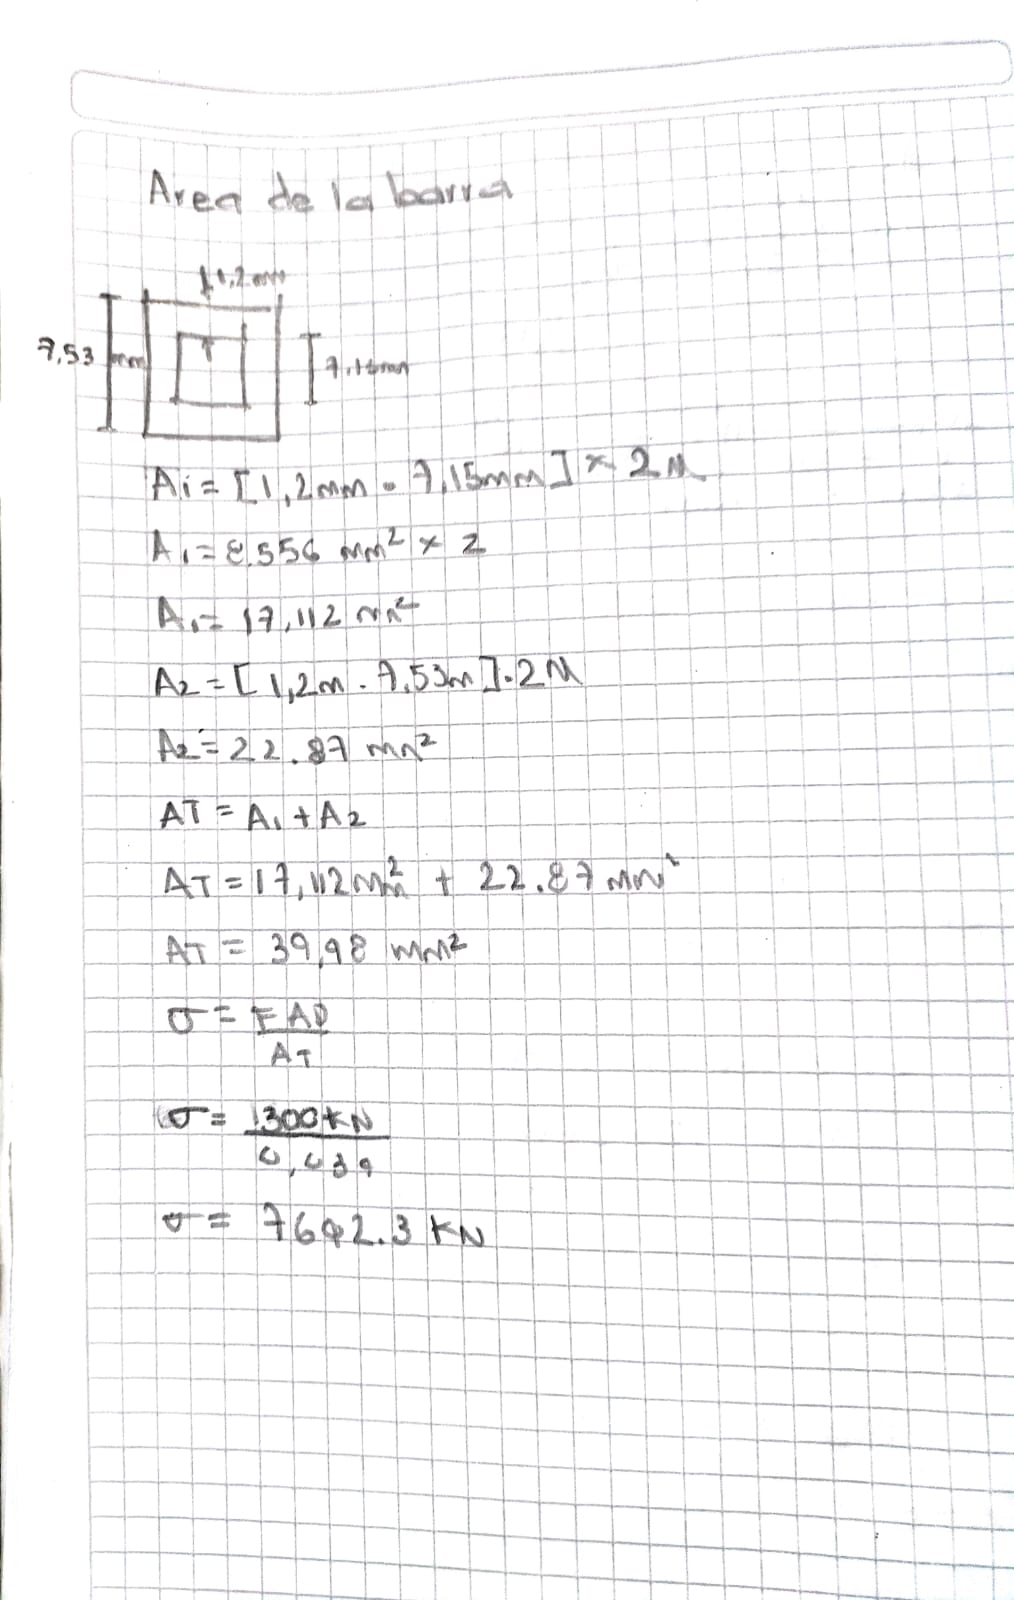 Area de la barra
1,2 mm
7,53 mm
7,15mm
A1= [1,2mm . 7,15mm] x 2
A1= 8.556 mm² x 2
A1= 17,112 mm²
A2 = [1,2m . 7,53m].2
A2= 22.87 mm²
AT = A1 + A2
AT = 17,112mm² + 22.87 mm²
AT = 39,98 mm²
σ = FAP
AT
σ = 300KN
0,039
σ = 7692.3 KN